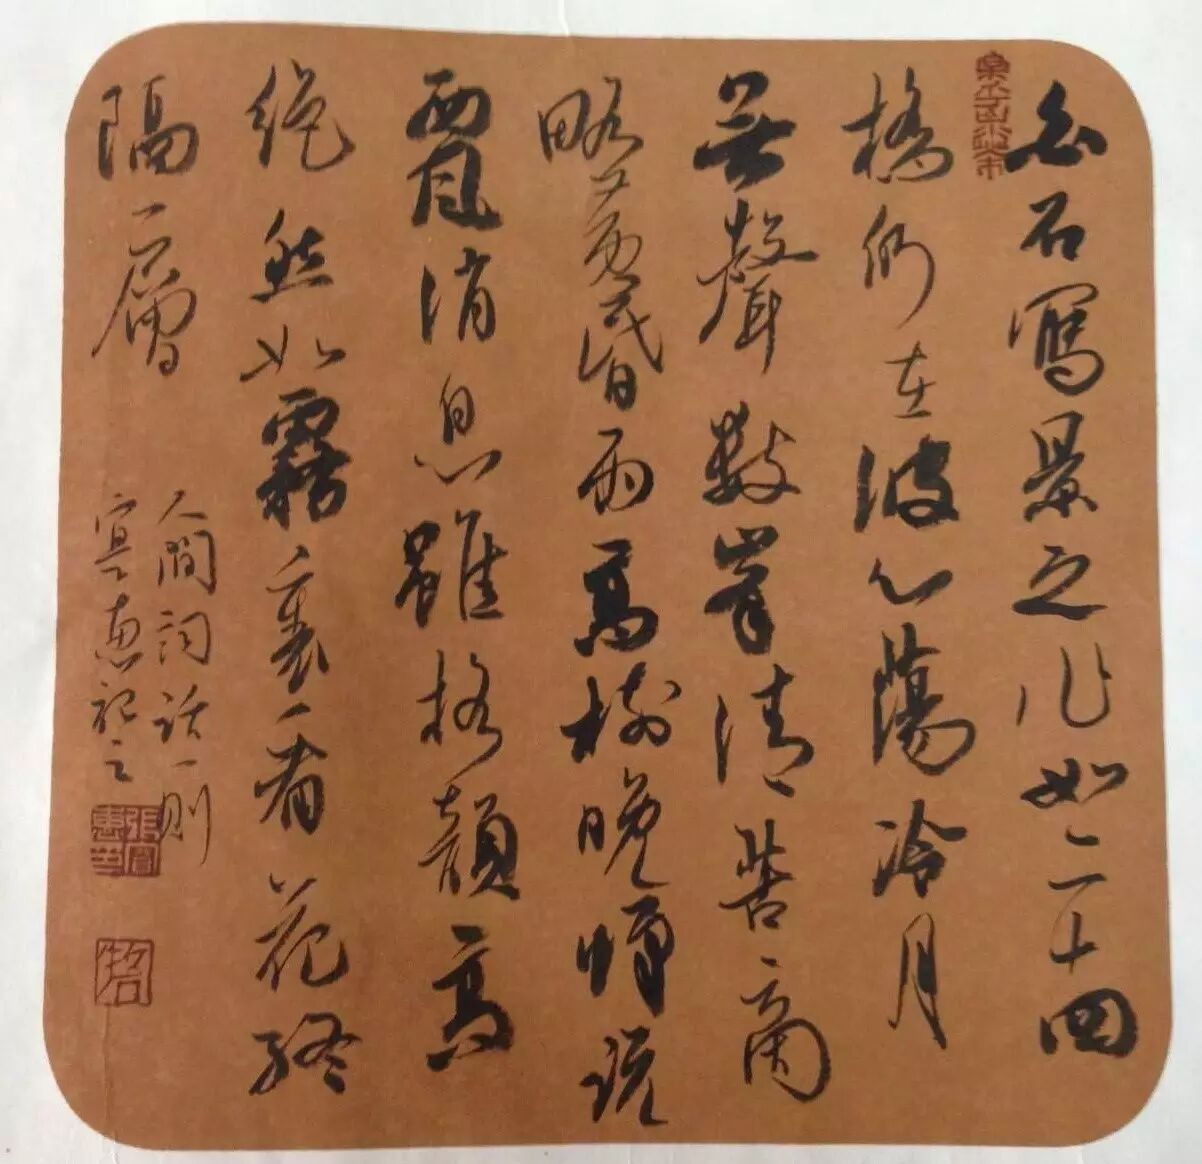 白石寫景之作如二十四
橋仍在波心蕩冷月
無聲數峯清苦商
略黃昏雨高樹晚蟬說
西風消息雖格韻高
絕然如霧裏看花終
隔一層
人間詞話一則
寅惠記之